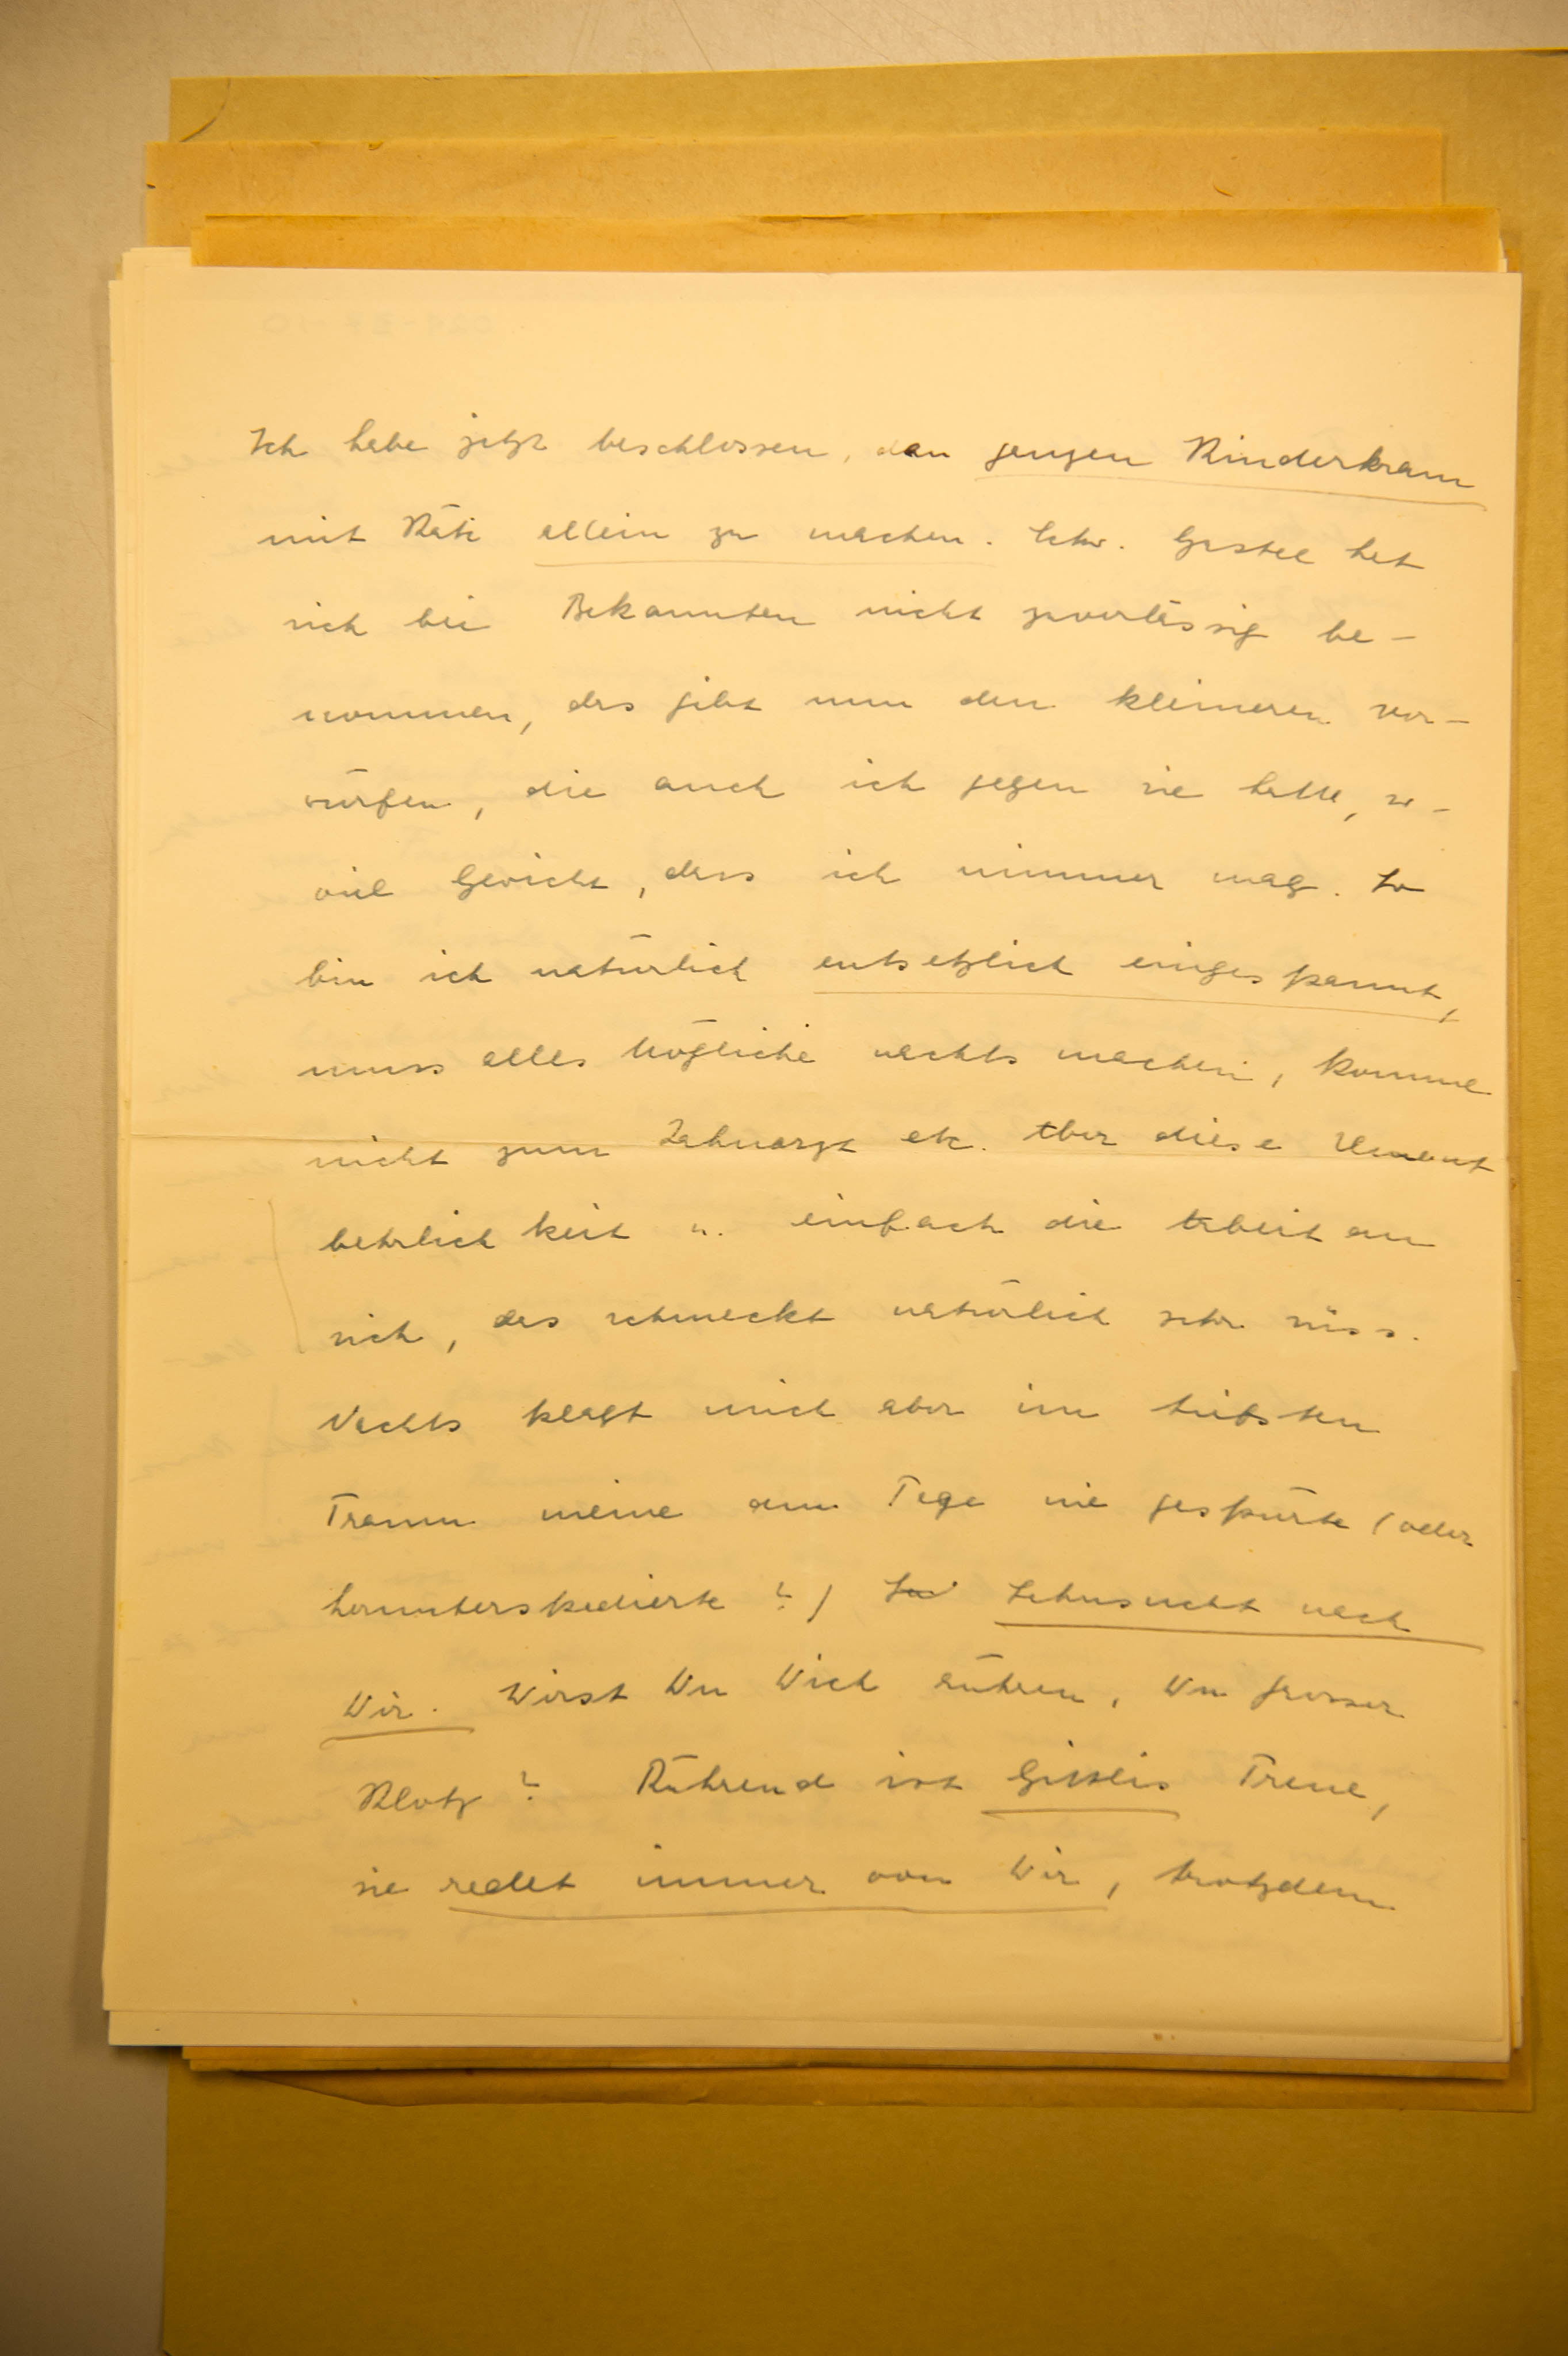 Ich habe jetzt beschlossen, den ganzen Kinderkram
mit Käti allein zu machen. Schw. Gretel hat
sich bei Bekannten nicht zuverlässig be-
nommen, das gibt nun den kleineren Vor-
würfen, die auch ich gegen sie hatte, so-
viel Gewicht, dass ich nimmer mag. So
bin ich natürlich entsetzlich eingespannt,
muss alles Mögliche nachts machen, komme
nicht zum Zahnarzt etc. Aber diese Unent
behrlichkeit u. einfach die Arbeit an
sich, das schmeckt natürlich sehr süss.
Nachts plagt mich aber im tiefsten
Traum meine am Tage nie gespürte (oder
herunterspedierte?) Sehnsucht nach
Dir. Wirst Du Dich rühren, Du grosser
Klotz? Rührend ist Treue,
sie redet immer von Dir, trotzdem